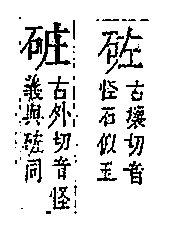 古壞切音
怪石似玉
古外切音怪
義與同